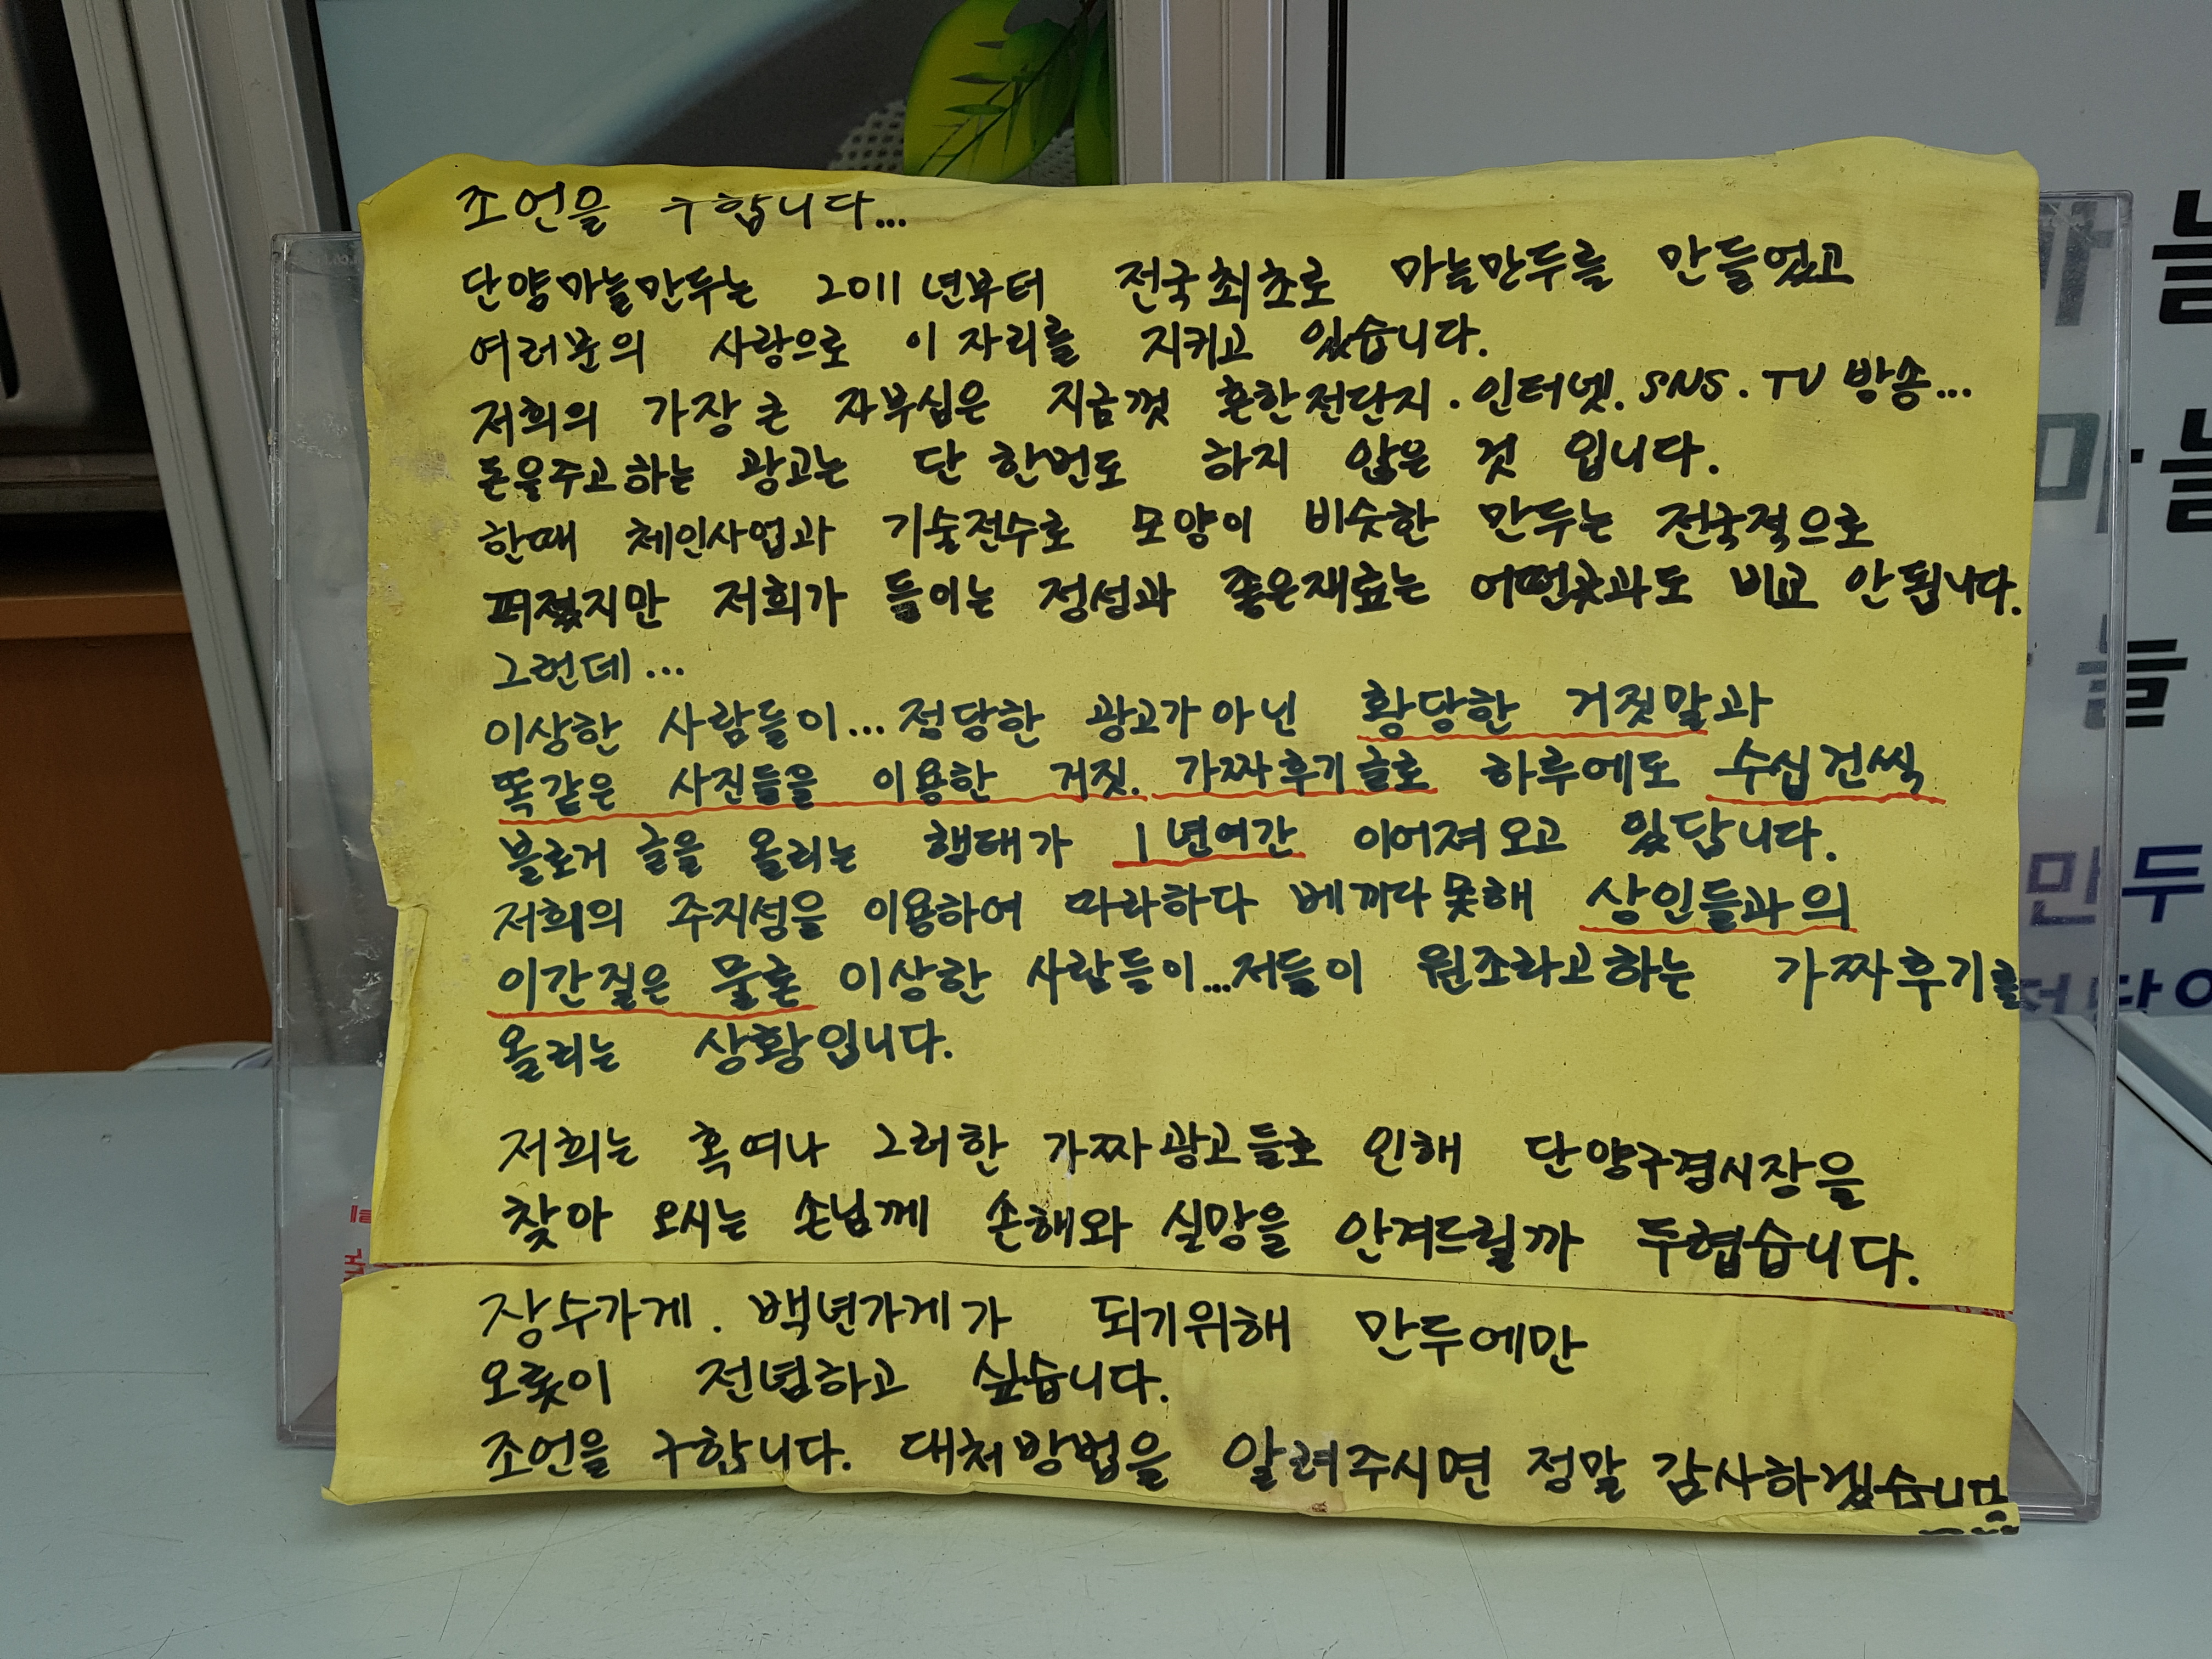 조언을 구합니다...
단양마늘만두는 2011년부터 전국최초로 마늘만두를 만들었고
여러분의 사랑으로 이 자리를 지키고 있습니다.
저희의 가장 큰 자부심은 지금껏 흔한전단지.인터넷.SNS.TV 방송...
돈을주고하는 광고는 단 한번도 하지 않은 것 입니다.
한때 체인사업과 기술전수로 모양이 비슷한 만두는 전국적으로
퍼졌지만 저희가 들이는 정성과 좋은재료는 어떤곳과도 비교 안됩니다.
그런데...
이상한 사람들이...정당한 광고가아닌 황당한 거짓말과
똑같은 사진들을 이용한 거짓.가짜후기글로 하루에도 수십건씩
블로거 글을 올리는 행태가 1년여간 이어져오고 있답니다.
저희의 주지성을 이용하여 따라하다 베끼다못해 상인들과의
이간질은 물론 이상한 사람들이...저들이 원조라고하는 가짜후기를
올리는 상황입니다.
저희는 혹여나 그러한 가짜광고들로 인해 단양구경시장을
찾아 오시는 손님께 손해와 실망을 안겨드릴까 두렵습니다.
장수가게.백년가게가 되기위해 만두에만
오롯이 전념하고 싶습니다.
조언을 구합니다. 대처방법을 알려주시면 정말 감사하겠습니다
마늘
마늘
늘
만두